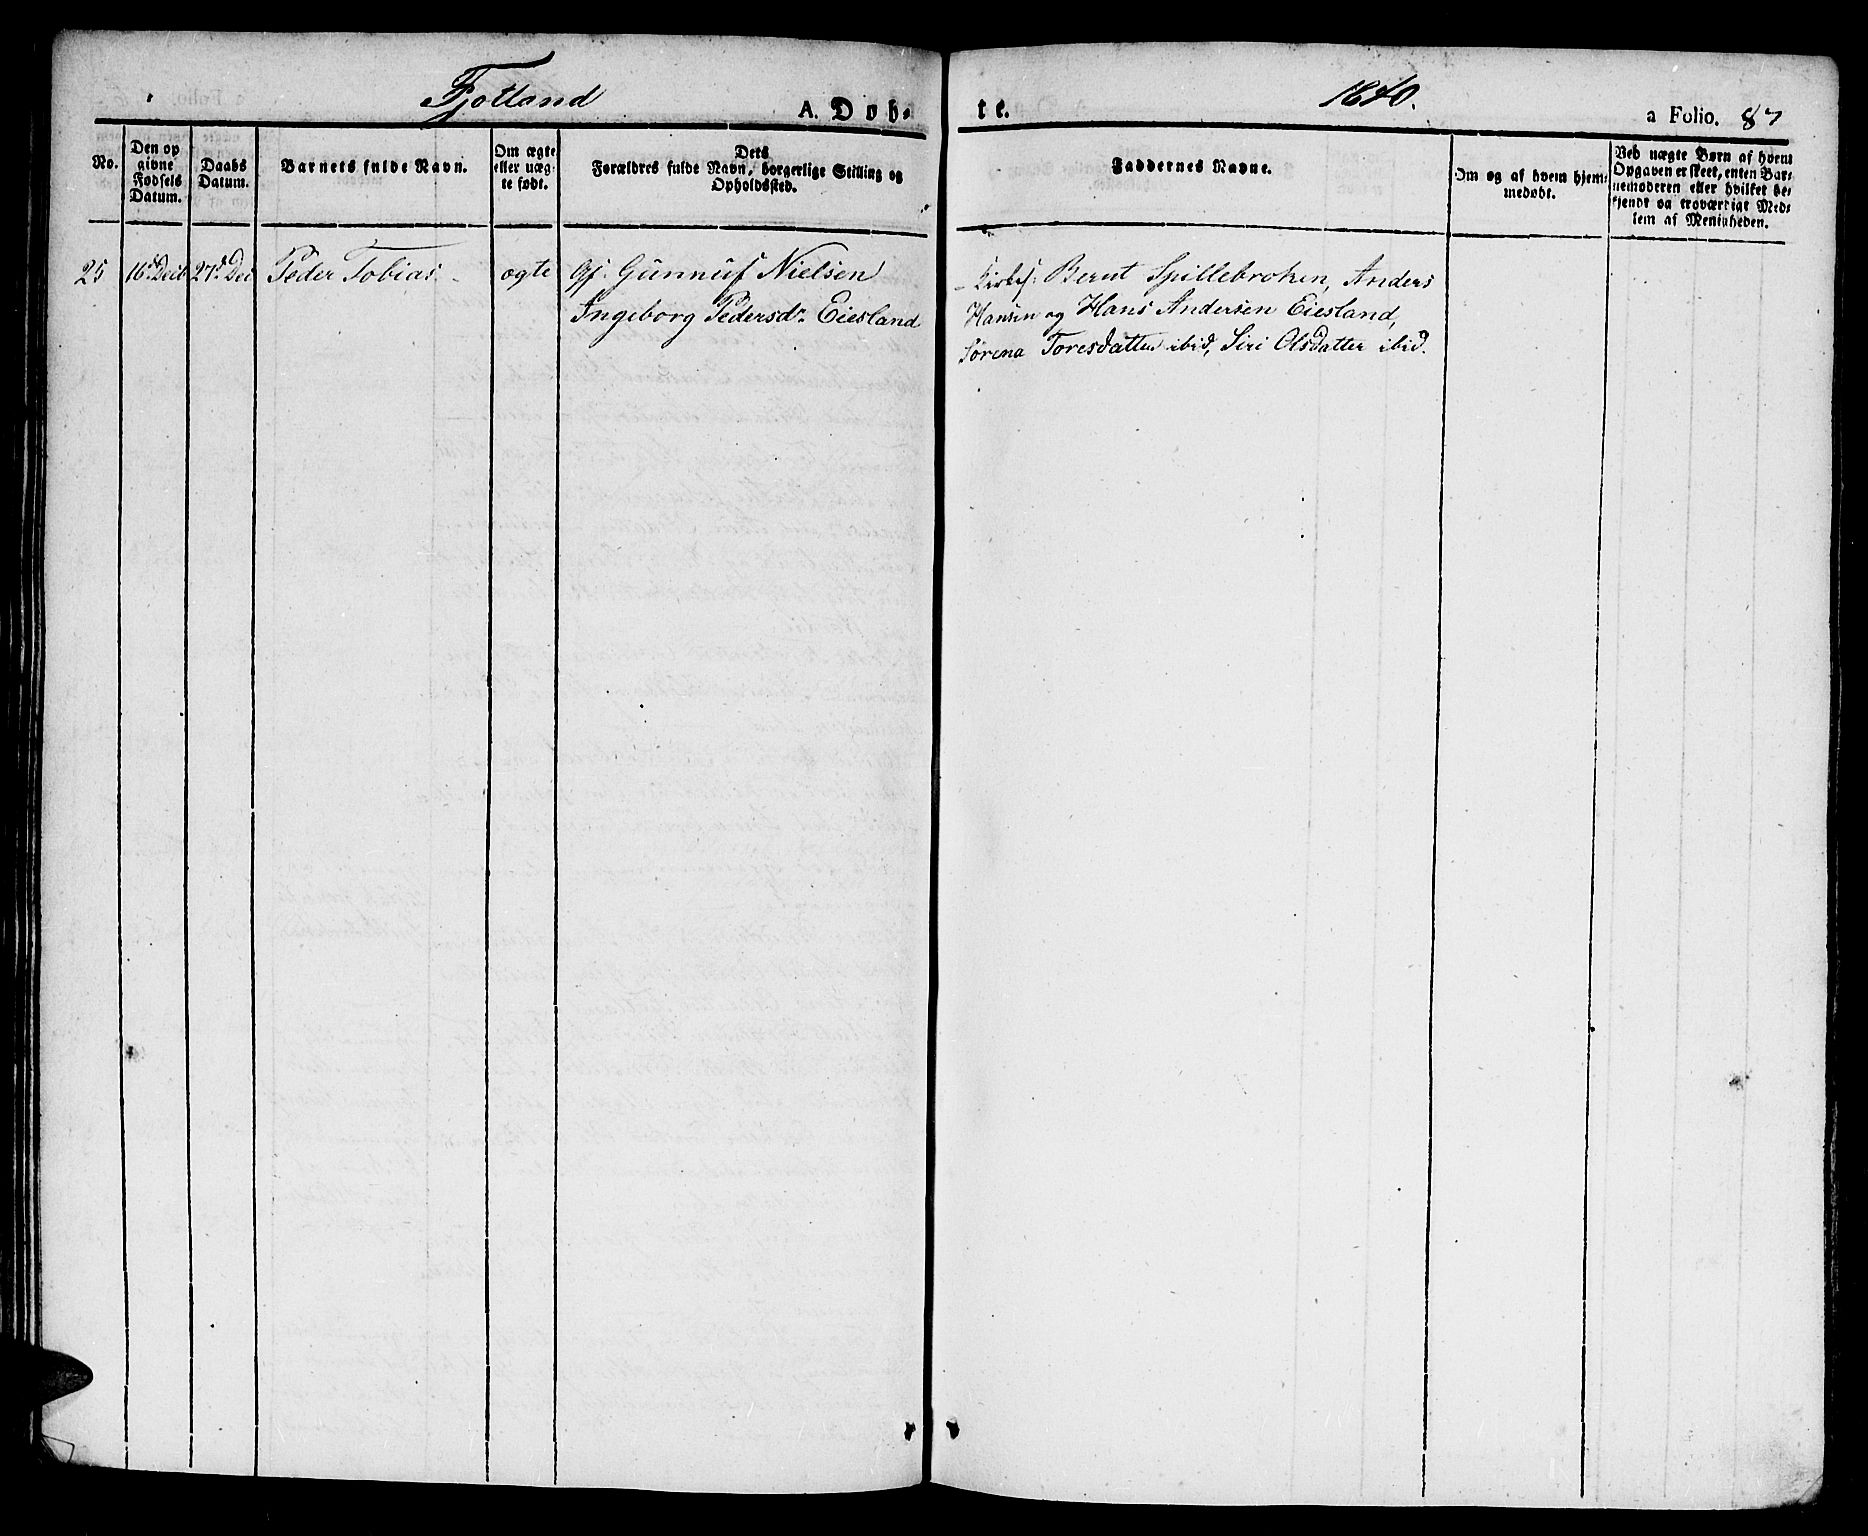 Fjotland
A. Døb-
te.
1840.
a Folio. 87
No.
Den op
givne
Fødsels
Datum.
Daabs
Datum.
Barnets fulde Navn.
Om ægte
eller uæg-
te født.
Dets
Forældres fulde Navn, borgerlige Stilling og
Opholdssted.
Faddernes Navne.
Om og af hvem hjem-
medøbt.
Ved uægte Børn af hvem
Opgaven er skeet, enten Bar-
nemoderen eller hvilket be-
kjendt og troværdigt Med-
lem af Menigheden.
25 16d Decb 27d Dec Peder Tobias - ægte Gj. Gunnuf Nielsen
Ingeborg Pedersdr. Eiesland
Kirkes: Bernt Spillebroken, Anders
Hansen og Hans Andersen Eiesland,
Sørena Toresdatter ibid, Siri Olsdatter ibid.